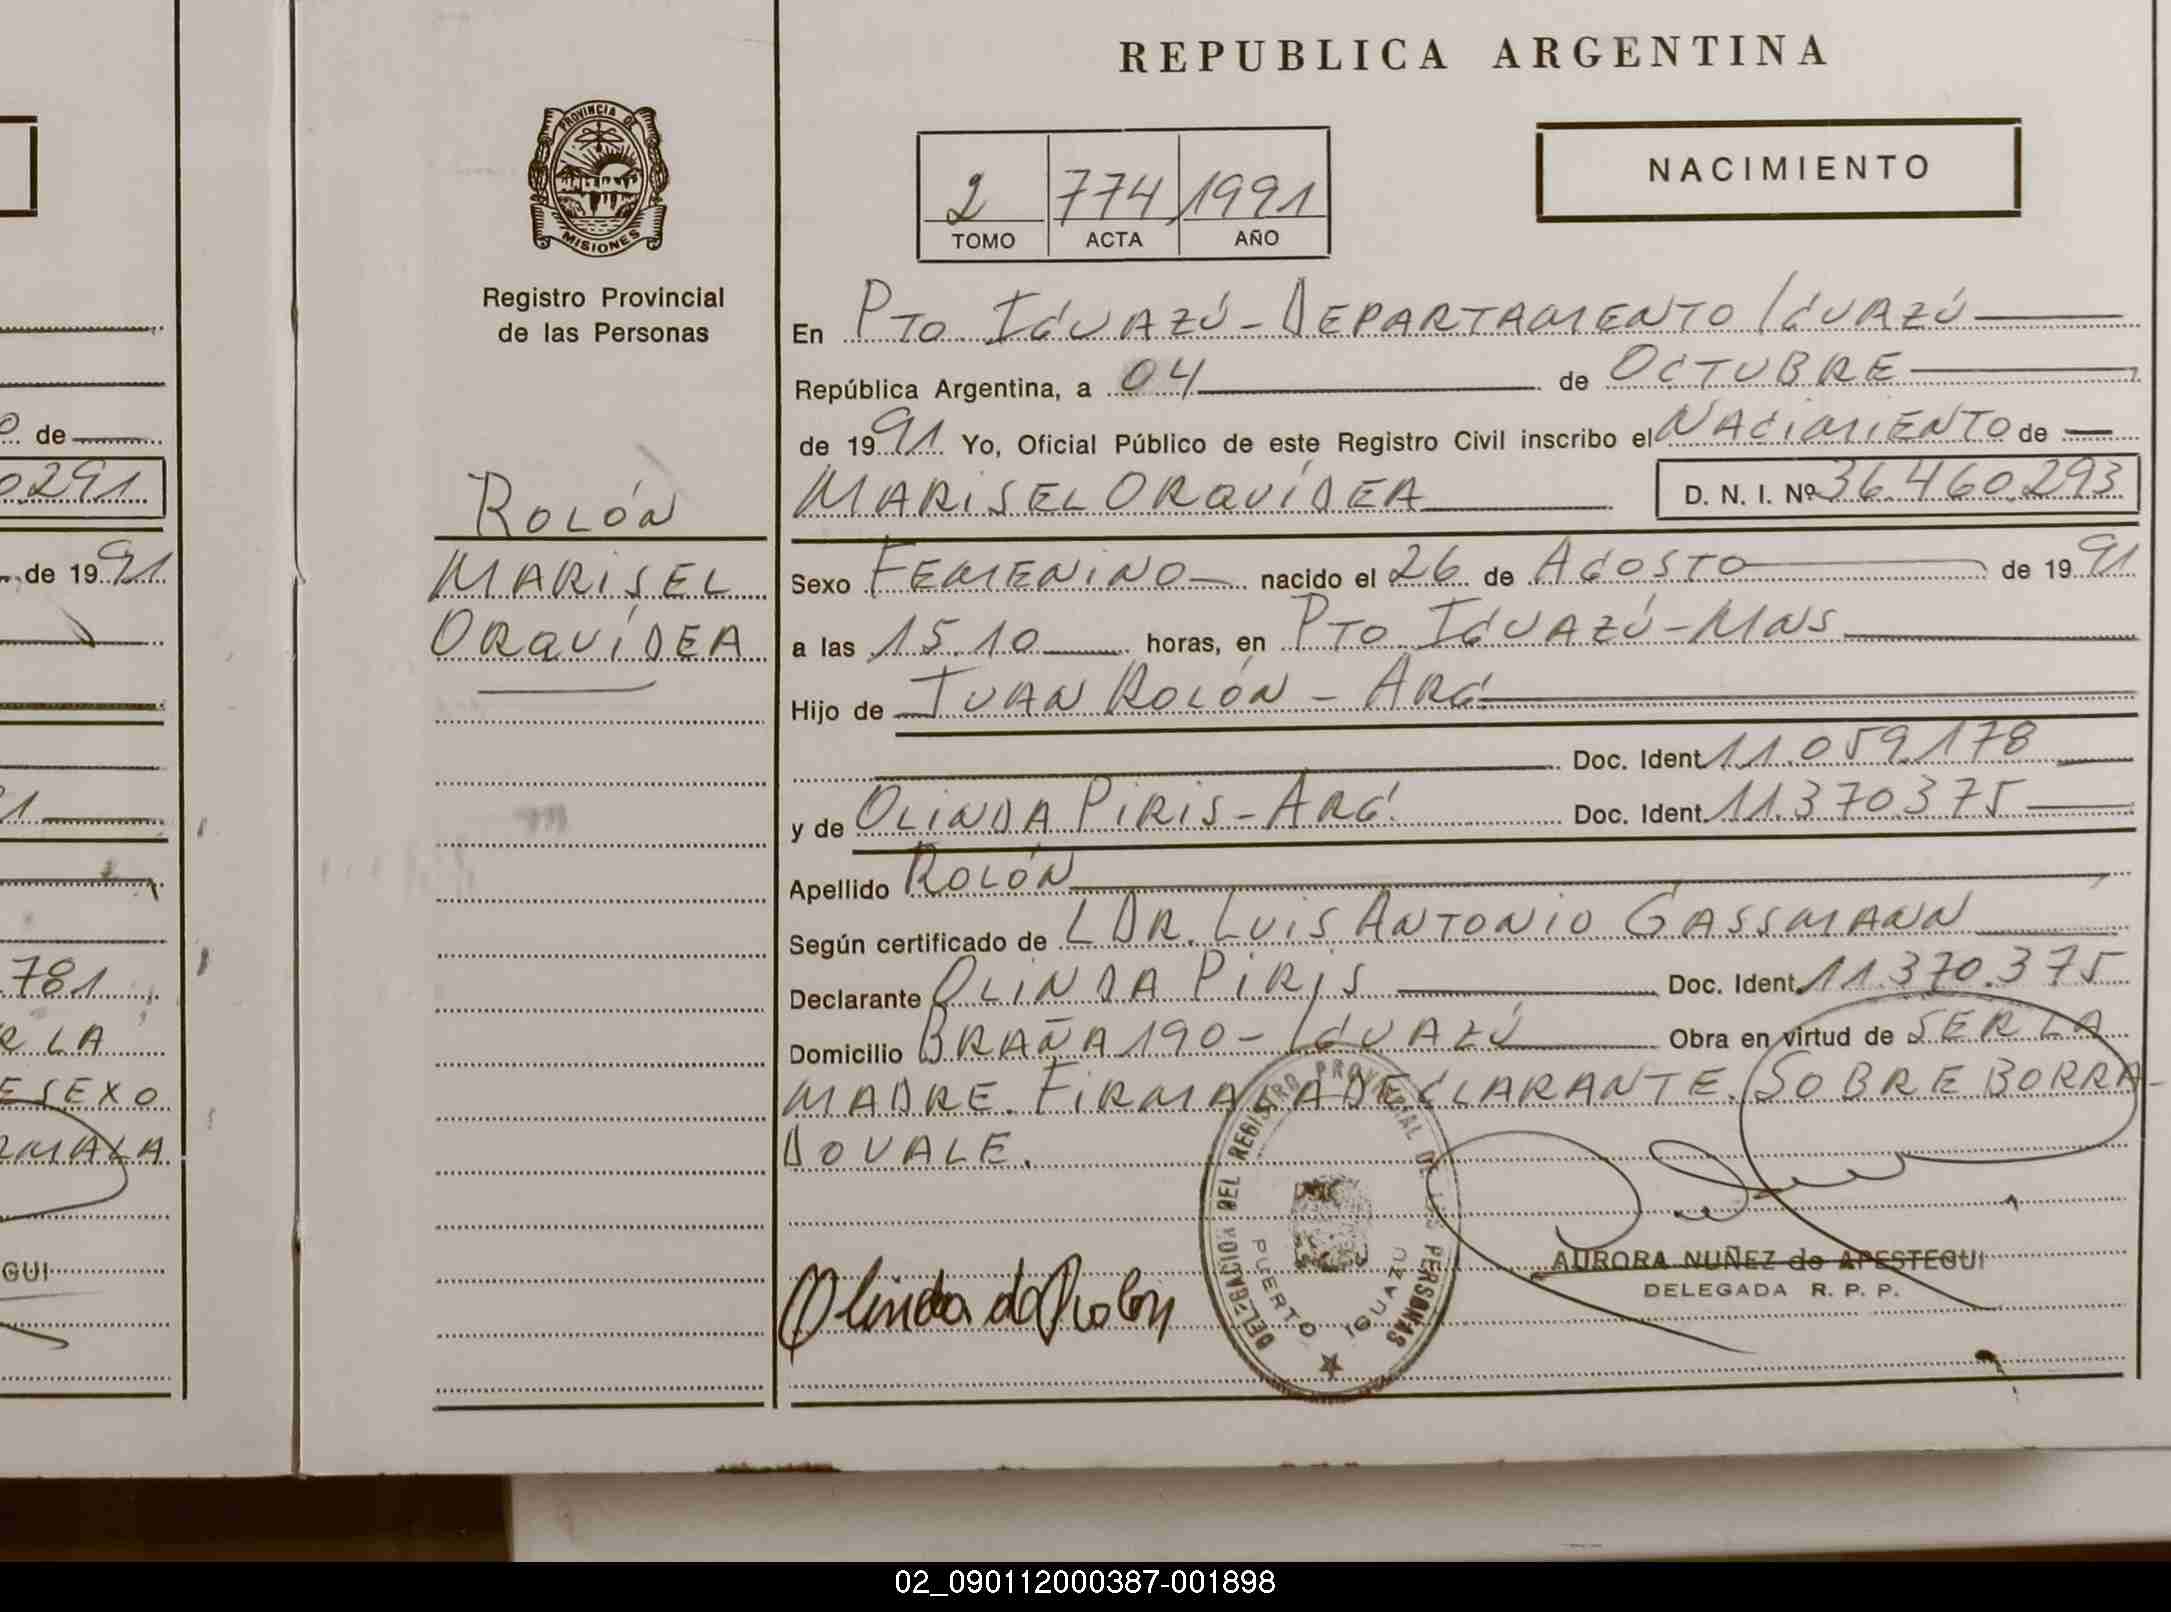 REPUBLICA ARGENTINA
PROVINCIA DE
MISIONES
Registro Provincial
de las Personas
2 774 1991
TOMO ACTA AÑO
NACIMIENTO
En PTO. IGUAZÚ - DEPARTAMENTO IGUAZÚ
República Argentina, a 04 de OCTUBRE
de 1991 Yo, Oficial Público de este Registro Civil inscribo el NACIMIENTO de
MARISEL ORQUÍDEA D. N. I. Nº 36.460.293
ROLÓN
MARISEL
ORQUÍDEA
Sexo FEMENINO nacido el 26 de AGOSTO de 1991
a las 15.10 horas, en PTO. IGUAZÚ - MNS
Hijo de JUAN ROLÓN - ARG.
Doc. Ident. 11.059.178
y de OLINDA PIRIS - ARG. Doc. Ident. 11.370.375
Apellido ROLÓN
Según certificado de L DR. LUIS ANTONIO GASSMANN
Declarante OLINDA PIRIS Doc. Ident. 11.370.375
Domicilio BRAÑA 190 - IGUAZÚ Obra en virtud de SER LA
MADRE. FIRMA LA DECLARANTE. SOBRE BORRA-
DO VALE.
DELEGACION DEL REGISTRO PROVINCIAL DE LAS PERSONAS
PUERTO IGUAZU
Olinda d Rolon
AURORA NUÑEZ de APESTEGUI
DELEGADA R. P. P.
de
0291
de 1991
781
R LA
E SEXO
RMA LA
GUI
02_090112000387-001898